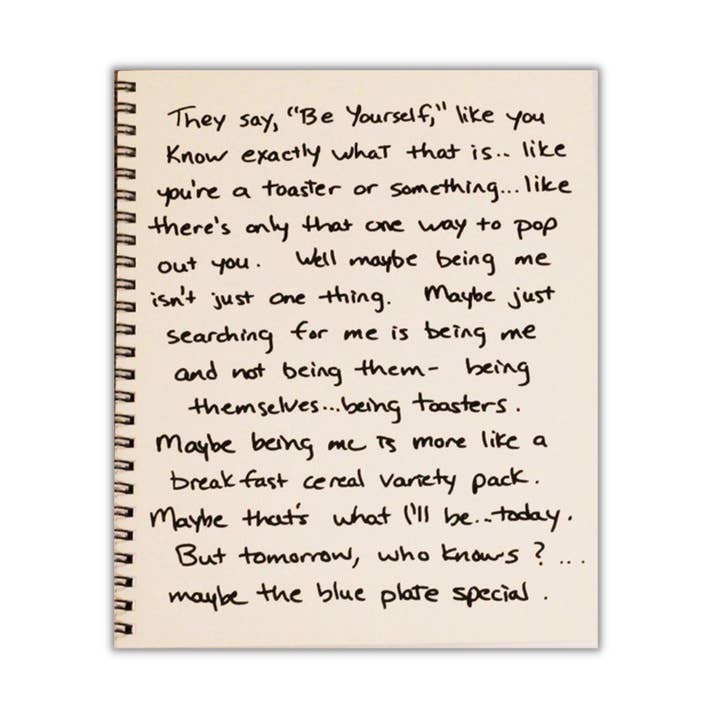 They say, "Be Yourself," like you
Know exactly what that is.. like
you're a toaster or something...like
there's only that one way to pop
out you. Well maybe being me
isn't just one thing. Maybe just
searching for me is being me
and not being them- being
themselves...being toasters.
Maybe being me is more like a
breakfast cereal variety pack.
Maybe that's what I'll be..today.
But tomorrow, who knows? ...
maybe the blue plate special.